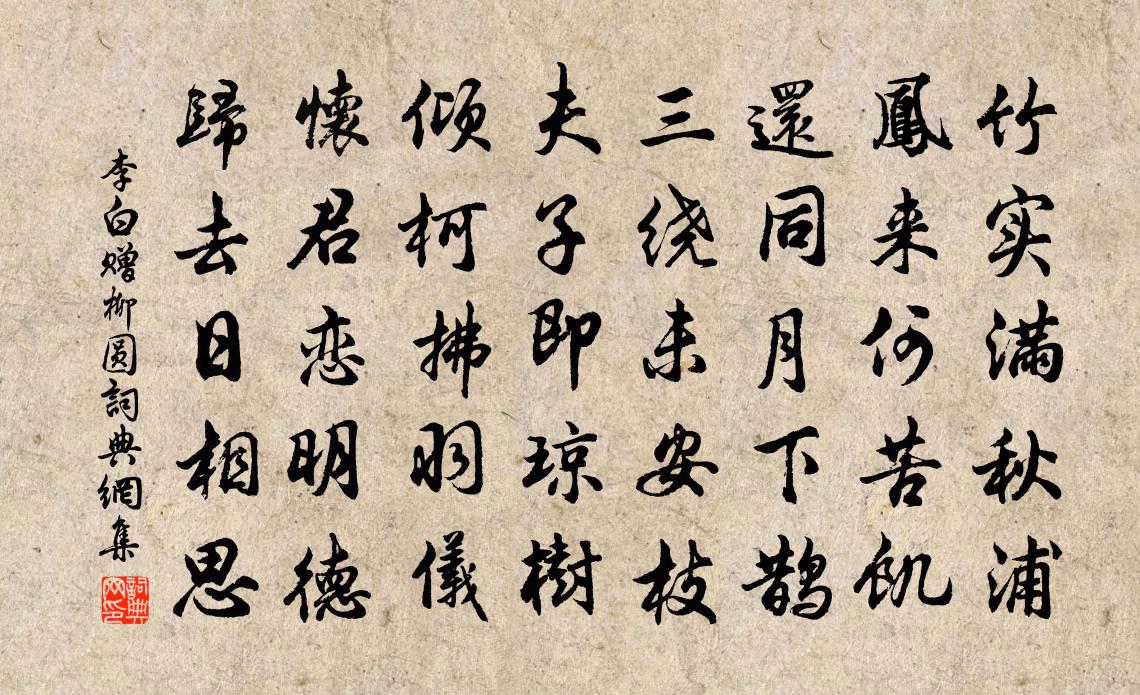 竹实满秋浦
鳳来何苦飢
還同月下鹊
三绕未安枝
夫子即琼樹
倾柯拂羽儀
懷君恋明德
歸去日相思
李白赠柳圆詞典網集
詞典网印